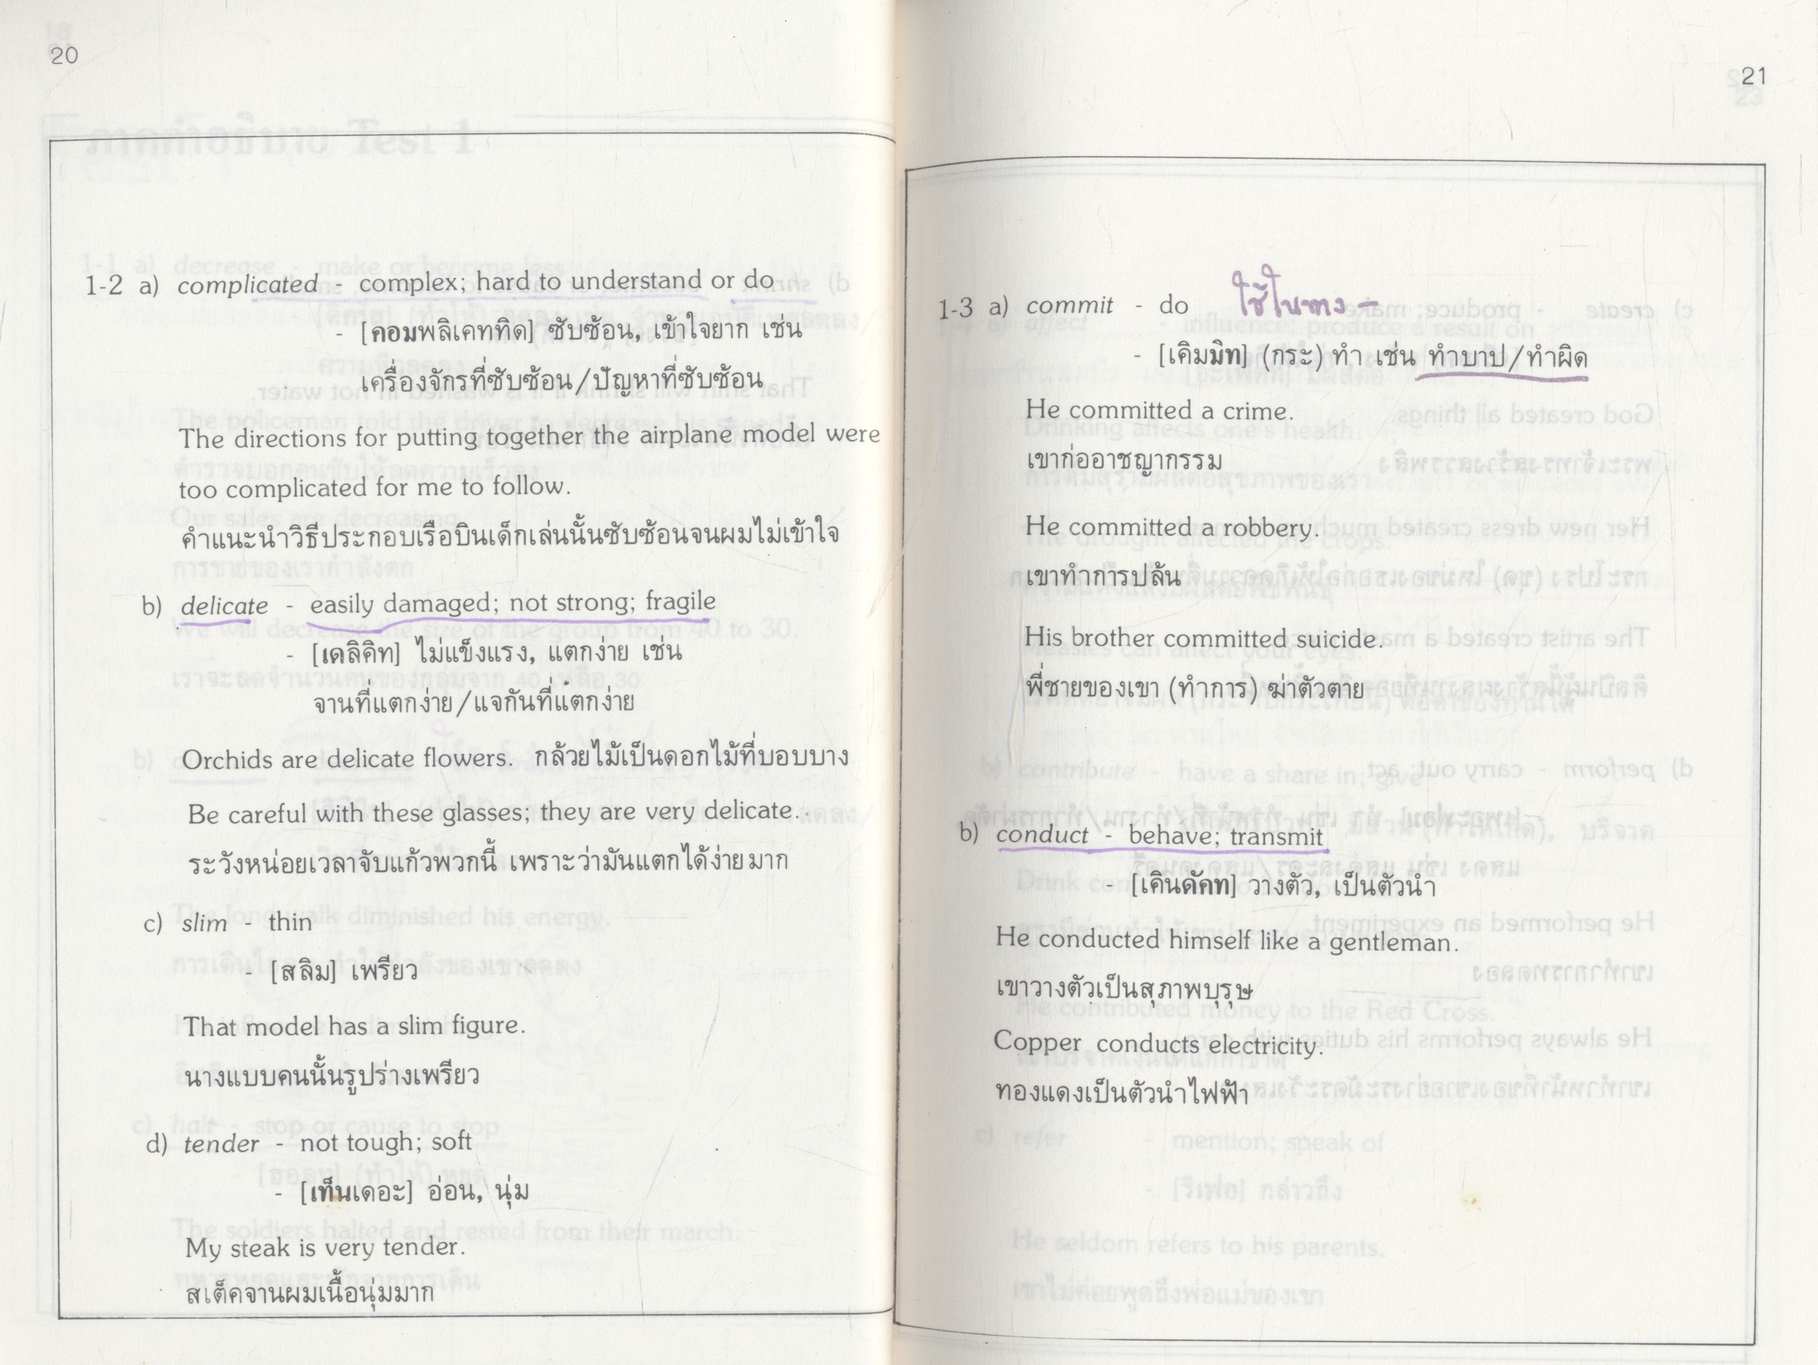 20
1-2 a) complicated - complex; hard to understand or do
- [คอมพลิเคททิด] ซับซ้อน, เข้าใจยาก เช่น
เครื่องจักรที่ซับซ้อน/ปัญหาที่ซับซ้อน
The directions for putting together the airplane model were
too complicated for me to follow.
คำแนะนำวิธีประกอบเรือบินเด็กเล่นนั้นซับซ้อนจนผมไม่เข้าใจ
b) delicate - easily damaged; not strong; fragile
- [เดลิคิท] ไม่แข็งแรง, แตกง่าย เช่น
จานที่แตกง่าย/แจกันที่แตกง่าย
Orchids are delicate flowers. กล้วยไม้เป็นดอกไม้ที่บอบบาง
Be careful with these glasses; they are very delicate.
ระวังหน่อยเวลาจับแก้วพวกนี้ เพราะว่ามันแตกได้ง่ายมาก
c) slim - thin
- [สลิม] เพรียว
That model has a slim figure.
นางแบบคนนั้นรูปร่างเพรียว
d) tender - not tough; soft
- [เท็นเดอะ] อ่อน, นุ่ม
My steak is very tender.
สเต็คจานผมเนื้อนุ่มมาก
21
1-3 a) commit - do ใช้ในทาง -
- [เคิมมิท] (กระ) ทำ เช่น ทำบาป/ทำผิด
He committed a crime.
เขาก่ออาชญากรรม
He committed a robbery.
เขาทำการปล้น
His brother committed suicide.
พี่ชายของเขา (ทำการ) ฆ่าตัวตาย
b) conduct - behave; transmit
- [เคินดัคท] วางตัว, เป็นตัวนำ
He conducted himself like a gentleman.
เขาวางตัวเป็นสุภาพบุรุษ
Copper conducts electricity.
ทองแดงเป็นตัวนำไฟฟ้า